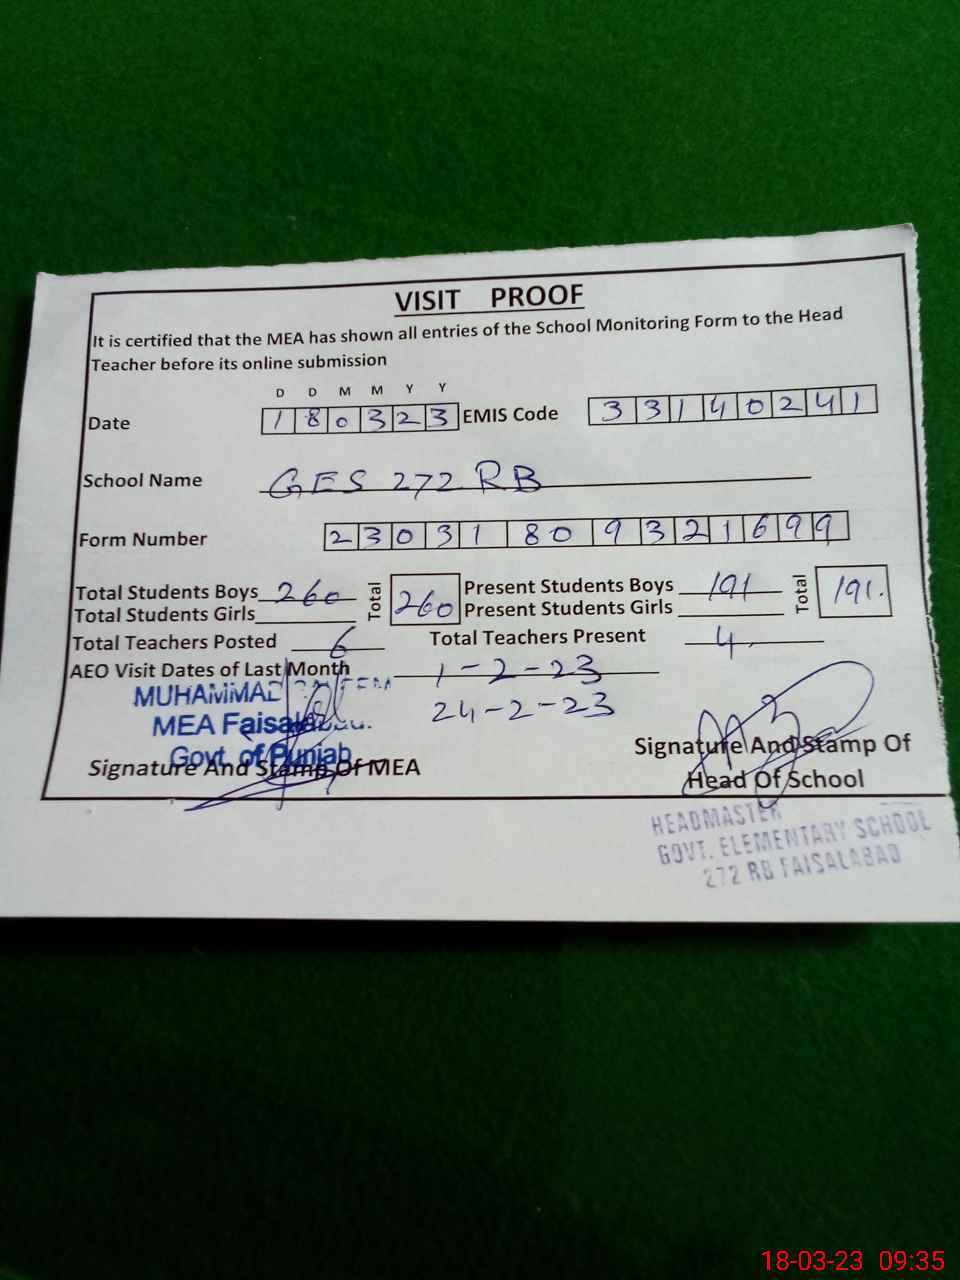 VISIT PROOF
It is certified that the MEA has shown all entries of the School Monitoring Form to the Head
Teacher before its online submission
D D M M Y Y
Date 180323 EMIS Code 33140241
School Name GES 272 RB
Form Number 23031809321699
Total Students Boys 260 Total 260 Present Students Boys 191 Total 191.
Total Students Girls Present Students Girls
Total Teachers Posted 6 Total Teachers Present 4
AEO Visit Dates of Last Month 1-2-23
24-2-23
MUHAMMAD
MEA Faisalabad
Govt. of Punjab
Signature And Stamp Of MEA
Signature And Stamp Of
Head Of School
HEADMASTER
GOVT. ELEMENTARY SCHOOL
272 RB FAISALABAD
18-03-23 09:35